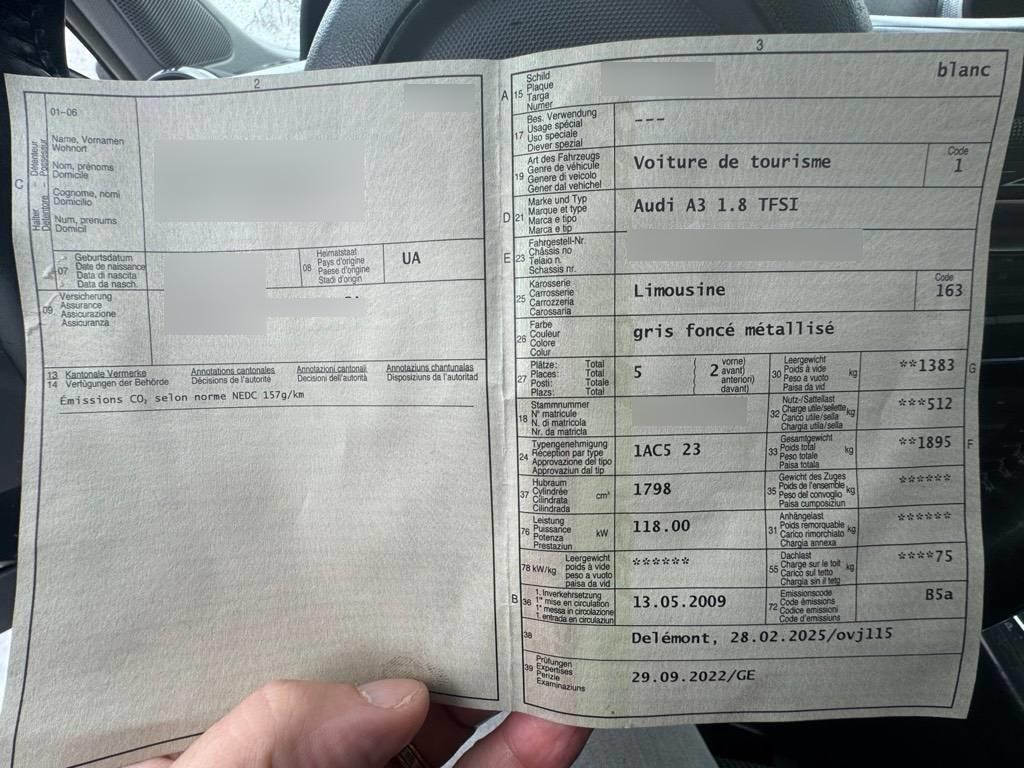 2
01–06
Halter – Détenteur
Detentore – Possessur
C
Name, Vornamen
Wohnort
Nom, prénoms
Domicile
Cognome, nomi
Domicilio
Num, prenums
Domicil
07
Geburtsdatum
Date de naissance
Data di nascita
Data da nasch.
08
Heimatstaat
Pays d'origine
Paese d'origine
Stadi d'origin
UA
09
Versicherung
Assurance
Assicurazione
Assicuranza
13 Kantonale Vermerke Annotations cantonales Annotazioni cantonali Annotaziuns chantunalas
14 Verfügungen der Behörde Décisions de l'autorité Decisioni dell'autorità Disposiziuns da l'autoritad
Émissions CO₂ selon norme NEDC 157g/km
3
A 15
Schild
Plaque
Targa
Numer
blanc
17
Bes. Verwendung
Usage spécial
Uso speciale
Diever spezial
---
19
Art des Fahrzeugs
Genre de véhicule
Genere di veicolo
Gener dal vehichel
Voiture de tourisme
Code
1
D 21
Marke und Typ
Marque et type
Marca e tipo
Marca e tip
Audi A3 1.8 TFSI
E 23
Fahrgestell-Nr.
Châssis no
Telaio n.
Schassis nr.
25
Karosserie
Carrosserie
Carrozzeria
Carossaria
Limousine
Code
163
26
Farbe
Couleur
Colore
Colur
gris foncé métallisé
27
Plätze: Total
Places: Total
Posti: Totale
Plazs: Total
5
2
vorne)
avant)
anteriori)
davant)
30
Leergewicht
Poids à vide
Peso a vuoto
Paisa da vid
kg
**1383
G
18
Stammnummer
N° matricule
N. di matricola
Nr. da matricla
32
Nutz-/Sattellast
Charge utile/sellette
Carico utile/sella
Chargia utila/sella
kg
***512
24
Typengenehmigung
Réception par type
Approvazione del tipo
Approvaziun dal tip
1AC5 23
33
Gesamtgewicht
Poids total
Peso totale
Paisa totala
kg
**1895
F
37
Hubraum
Cylindrée
Cilindrata
Cilindrada
cm³
1798
35
Gewicht des Zuges
Poids de l'ensemble
Peso del convoglio
Paisa cumposiziun
kg
******
76
Leistung
Puissance
Potenza
Prestaziun
kW
118.00
31
Anhängelast
Poids remorquable
Carico rimorchiato
Chargia annexa
kg
******
78 kW/kg
Leergewicht
poids à vide
peso a vuoto
paisa da vid
******
55
Dachlast
Charge sur le toit
Carico sul tetto
Chargia sin il tetg
kg
****75
B 36
1. Inverkehrsetzung
1re mise en circulation
1a messa in circolazione
1. entrada en circulaziun
13.05.2009
72
Emissionscode
Code émissions
Codice emissioni
Code d'emissiuns
B5a
38
Delémont, 28.02.2025/ovj115
39
Prüfungen
Expertises
Perizie
Examinaziuns
29.09.2022/GE